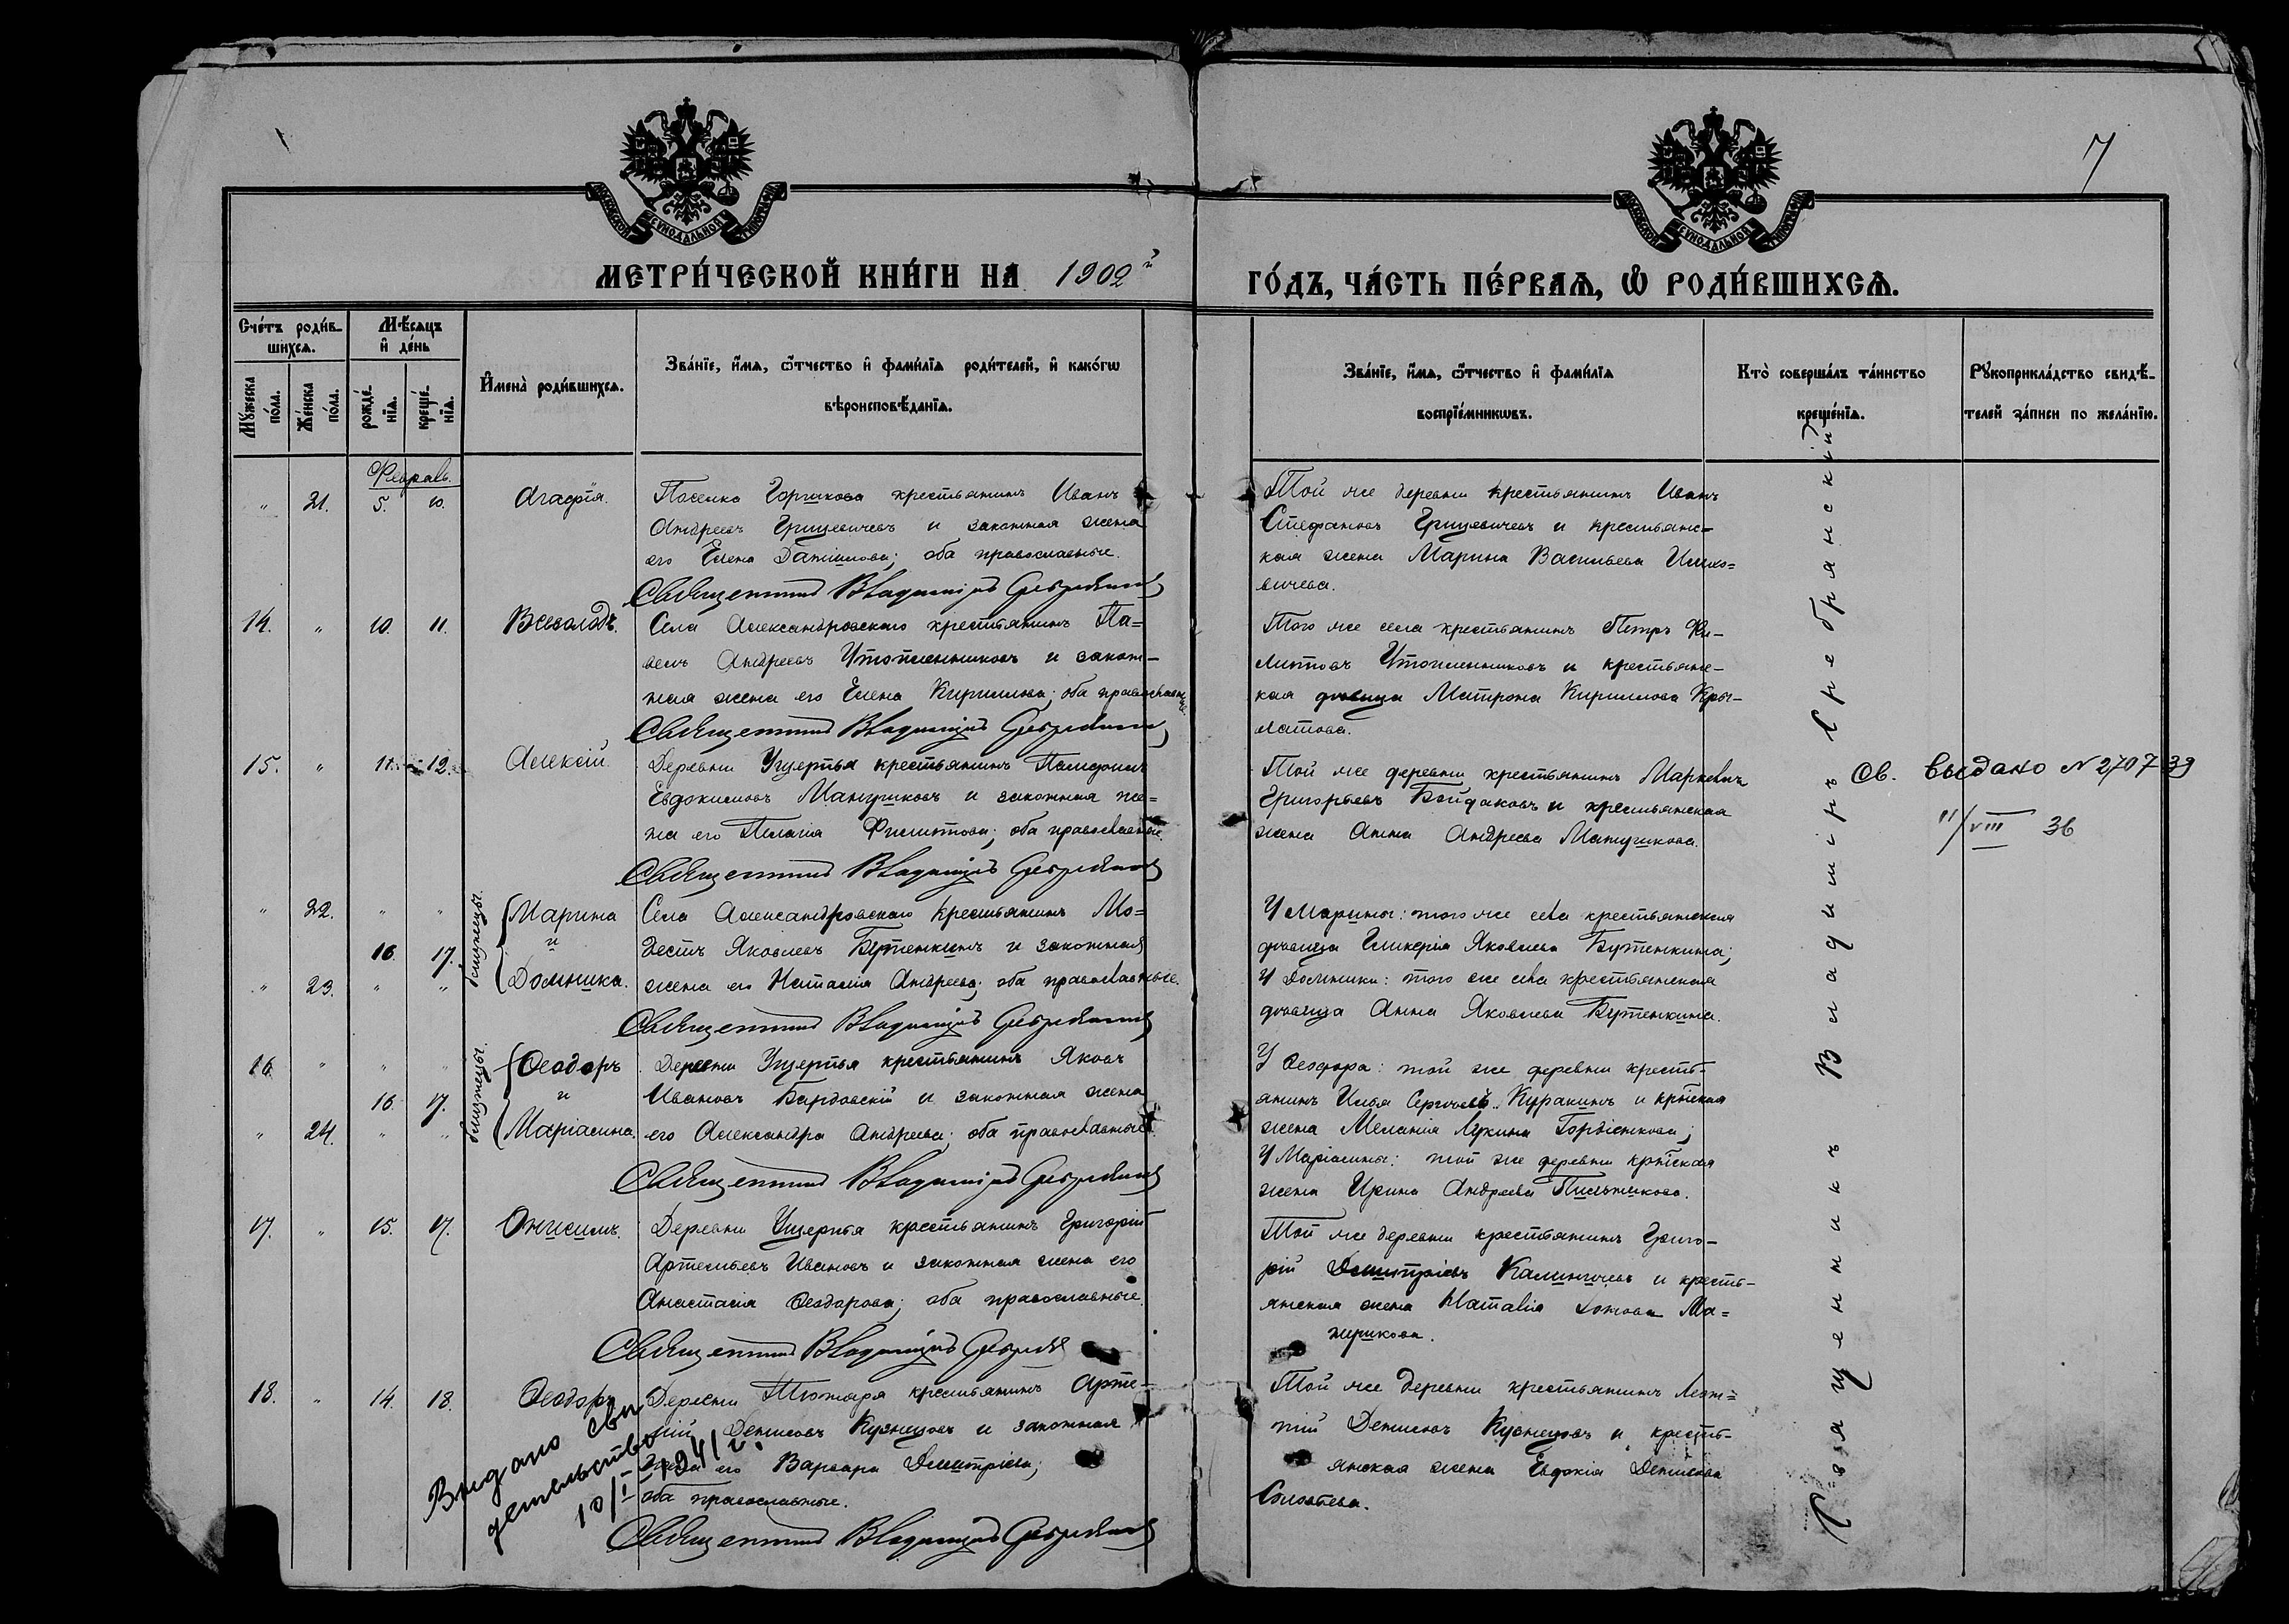 7
МЕТРИ́ЧЕСКОЙ КНИ́ГИ НА 1902й
ГО́ДЪ, ЧА́СТЬ ПЕ́РВАѦ, Ѡ҆ РОДИ́ВШИХСѦ.
Сче́тъ роди́в-
шихсѧ.
Мѣ́сѧцъ
и҆ де́нь
Мꙋ́жеска
по́ла.
Же́нска
по́ла.
рожде́-
нїѧ.
креще́-
нїѧ.
И҆мена̀ роди́вшихсѧ.
Зва́нїе, и҆́мѧ, ѻ҆́тчество и҆ фами́лїѧ роди́телей, и҆ како́гѡ
вѣроисповѣ́данїѧ.
Зва́нїе, и҆́мѧ, ѻ҆́тчество и҆ фами́лїѧ
воспрїе́мникѡвъ.
Кто̀ соверша́лъ та́инство
креще́нїѧ.
Рꙋкоприкла́дство свидѣ́-
телей за́писи по жела́нїю.
Февраль.
" 21. 5. 10. Агафія.
Поселка Горшкова крестьянинъ Иванъ
Андреевъ Грицевичевъ и законная жена
его Елена; оба православные.
Священникъ Владиміръ Сребрянскій
Той же деревни крестьянинъ Иванъ
Стефановъ Грицевичевъ и крестьянс=
кая жена Марина Васильева
вичева.
14. " 10. 11. Всеволодъ.
Села Александровскаго крестьянинъ Па=
велъ Андреевъ Утопленниковъ и закон-
ная жена его Елена Кириллова; оба православные.
Священникъ Владиміръ Сребрянскій
Того же села крестьянинъ Петръ Фи-
липповъ Утопленниковъ и крестьянс-
кая девица Матрона Кириллова Кры-
латова.
15. " 11. 12. Алексій.
Деревни Ущерпья крестьянинъ
Евдокимовъ Манжуриковъ и законная же=
на его Пелагія Филиппова; оба православные.
Священникъ Владиміръ Сребрянскій
Той же деревни крестьянинъ
Григорьевъ Бойдаковъ и крестьянская
жена Анна Андреева
Св. выдано № 2707 39
11/VIII 36
близнецы.
" 22. " " Марина
и
16. 17.
" 23. " " Домника.
Села Александровскаго крестьянинъ Мо=
дестъ Яковлевъ Бутенкинъ и законная
жена его Наталія Андреева; оба православные.
Священникъ Владиміръ Сребрянскій
У Марины: того же села крестьянская
девица Гликерія Яковлева Бутенкина;
У Домники: того же села крестьянская
девица Анна Яковлева Бутенкина.
близнецы.
16. " " " Ѳеодоръ
и
16. 17.
" 24. " " Маріамна.
Деревни Ущерпья крестьянинъ Яковъ
Ивановъ Бардовскій и законная жена
его Александра Андреева; оба православные.
Священникъ Владиміръ Сребрянскій
У Ѳеодора: той же деревни кресть-
янинъ Илья Сергеевъ Куракинъ и кртская
жена Меланія Лукина Гордіенкова;
У Маріамны: той же деревни кртская
жена Ирина Андреева Пильникова.
17. " 15. 17. Онисимъ.
Деревни Ущерпья крестьянинъ Григорій
Артемьевъ Ивановъ и законная жена его
Анастасія Ѳеодорова; оба православные.
Священникъ Владиміръ
Той же деревни крестьянинъ Григо-
рій Димитріевъ Калиничевъ и кресть-
янская жена Наталія Ма=
нжурикова.
18. " 14. 18. Ѳеодоръ
Деревни крестьянинъ Арте-
мій Денисовъ Кузнецовъ и законная
жена его Варвара Димитріева;
оба православные.
Священникъ Владиміръ Сребрянскій
Той же деревни крестьянинъ Леон=
тій Денисовъ Кузнецовъ и кресть-
янская жена Евдокія Денисова
Соловьева.
Выдано сви
детельство
10/I 1941 г.
Священникъ Владиміръ Сребрянскій